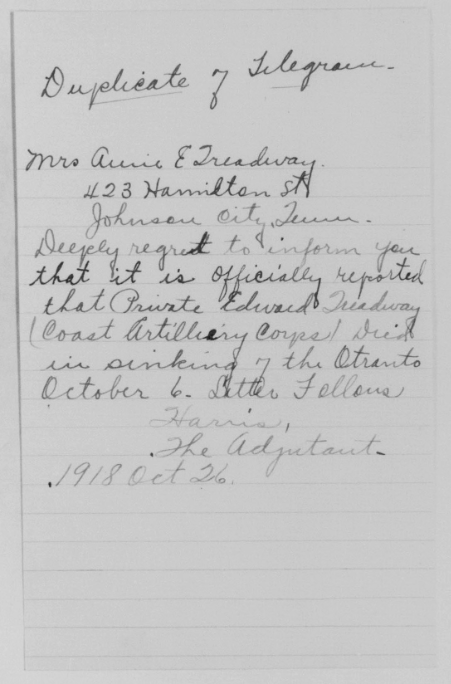 Duplicate of Telegram.
Mrs Annie E Treadway.
423 Hamilton St
Johnson City, Tenn.
Deeply regret to inform you
that it is officially reported
that Private Edward Treadway
(Coast Artilliery Corps) Died
in sinking of the Otranto
October 6. Letter Follows
Harris,
The Adjutant.
.1918 Oct 26.